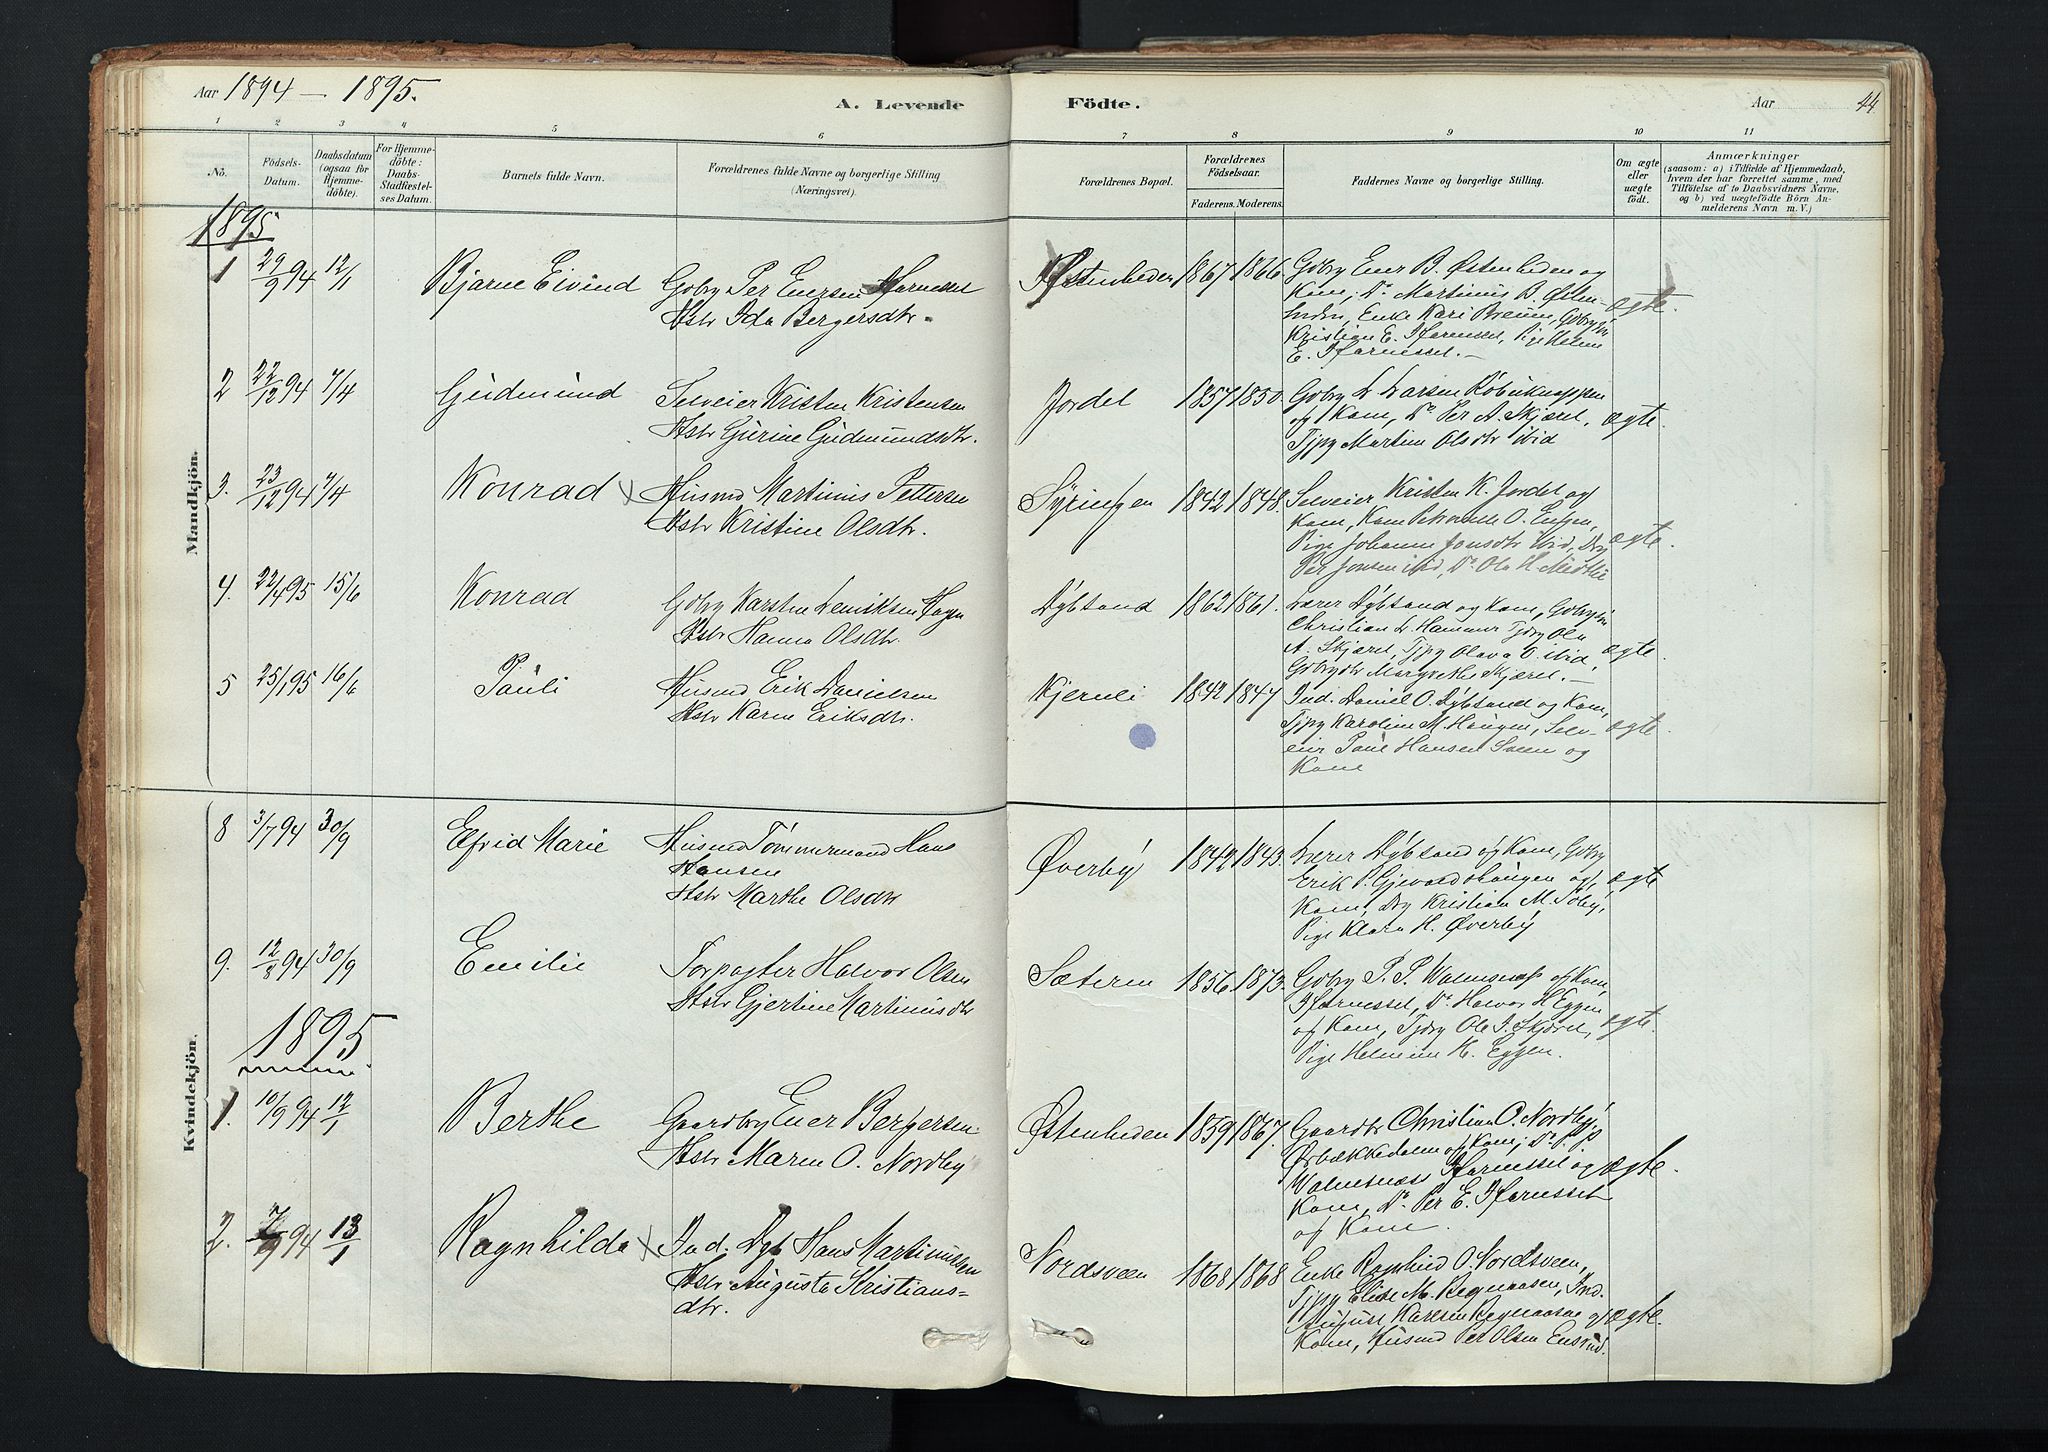 Aar 1894 – 1895.
A. Levende
Födte.
Aar
44
1 2 3 4 5 6
7 8 9 10 11
No.
Födsels-
Datum.
Daabsdatum
(ogsaa for
Hjemme-
döbte).
For Hjemme-
döbte:
Daabs-
Stadfæstel-
ses Datum.
Barnets fulde Navn.
Forældrenes fulde Navne og borgerlige Stilling
(Næringsvei).
Forældrenes Bopæl.
Forældrenes
Födselsaar.
Faderens. Moderens.
Faddernes Navne og borgerlige Stilling.
Om ægte
eller
uægte
födt.
Anmærkninger
(saasom: a) i Tilfælde af Hjemmedaab,
hvem der har forrettet samme, med
Tilföielse af to Daabsvidners Navne,
og b) ved uægtefödte Börn An-
melderens Navn m. V.)
Mandkjön.
1895
1 29/9 94 12/1 Bjarne Eivind
Gbbr Per Enersen Harnesset
Hstr Ida Bergersdtr.
Østenheden 1867 1866.
Gbbr Ener B. Østenheden og
Kone, Do Martinus B. Østen-
heden, Enke Kari
Kristian E. Harnesset, Pige
E. Harnesset.
ægte.
2 22/12 94 7/4 Gudmund
Selveier Kristen Kristensen
Hstr Gurine Gudmundsdtr.
Jordet 1857 1850.
L. Larsen
og Kone, Do Per A. Skjæret,
Tjpg Martine Olsdtr ibid
ægte.
3. 23/12 94 7/4 Konrad
Husmd Martinus Pettersen
Hstr Kristine Olsdtr.
1842 1848.
Selveier Kristen K. Jordet og
Kone, Kone O. Engen,
Pige Johanne Jonsdtr ibid,
Per Jonsen ibid, Do Ola H.
ægte.
4. 22/4 95 15/6 Konrad
Karsten Hagen
Hstr Hanna Olsdtr.
Dybsand 1862 1861.
Lærer Dybsand og Kone,
Christian L. Hammer Ola
A. Skjæret, Tjpg Olava O. ibid,
Margrethe Skjæret.
ægte.
5 25/1 95 16/6 Pauli
Husmd Erik Danielsen
Hstr Karen Eriksdtr.
Kjernli 1842 1847
Ind. Daniel O. Dybsand og Kone,
Tjpg Karoline M. Haugen, Selv-
eier Paul Hansen Sveen og
Kone
ægte.
Kvindekjön.
8 3/7 94 30/9 Elfrid Marie
Husmd Tømmermand Hans
Hansen
Hstr Marthe Olsdtr
Øverby 1842 1843.
Lærer Dybsand og Kone,
Erik P. og
Kone, Kristian M.
Pige Klara H. Øverby
ægte
9. 12/8 94 30/9 Emilie
Forpagter Halvor Olsen
Hstr Gjertine Martinusdtr
Sæteren 1856. 1873.
P. P. Walmsnæss og Kone,
Harnesset, Do Halvor H Eggen
og Kone, Ole Skjæret,
Pige H. Eggen.
ægte.
1895
1. 10/9 94 12/1 Berthe
Gaardbr Ener Bergersen
Hstr Maren O. Nordby
Østenheden 1859 1867.
Gaardbr Christian O. Nordby,
Ørbækkedalen og Kone; Do P. P.
Walmsnæss Harnesset og
Kone, Do Per E. Harnesset
og Kone.
ægte.
2. 94 13/1 Ragnhilda
Ind. Hans Martinussen
Hstr Augusta Kristians=
dtr.
Nordsveen 1868 1868
Enke Ragnhild O. Nordsveen,
Tjpg Elise M. Regnaasen, Ind.
August Karlsen Regnaasen og
Kone, Husmd Per Olsen Ensrud.
ægte.